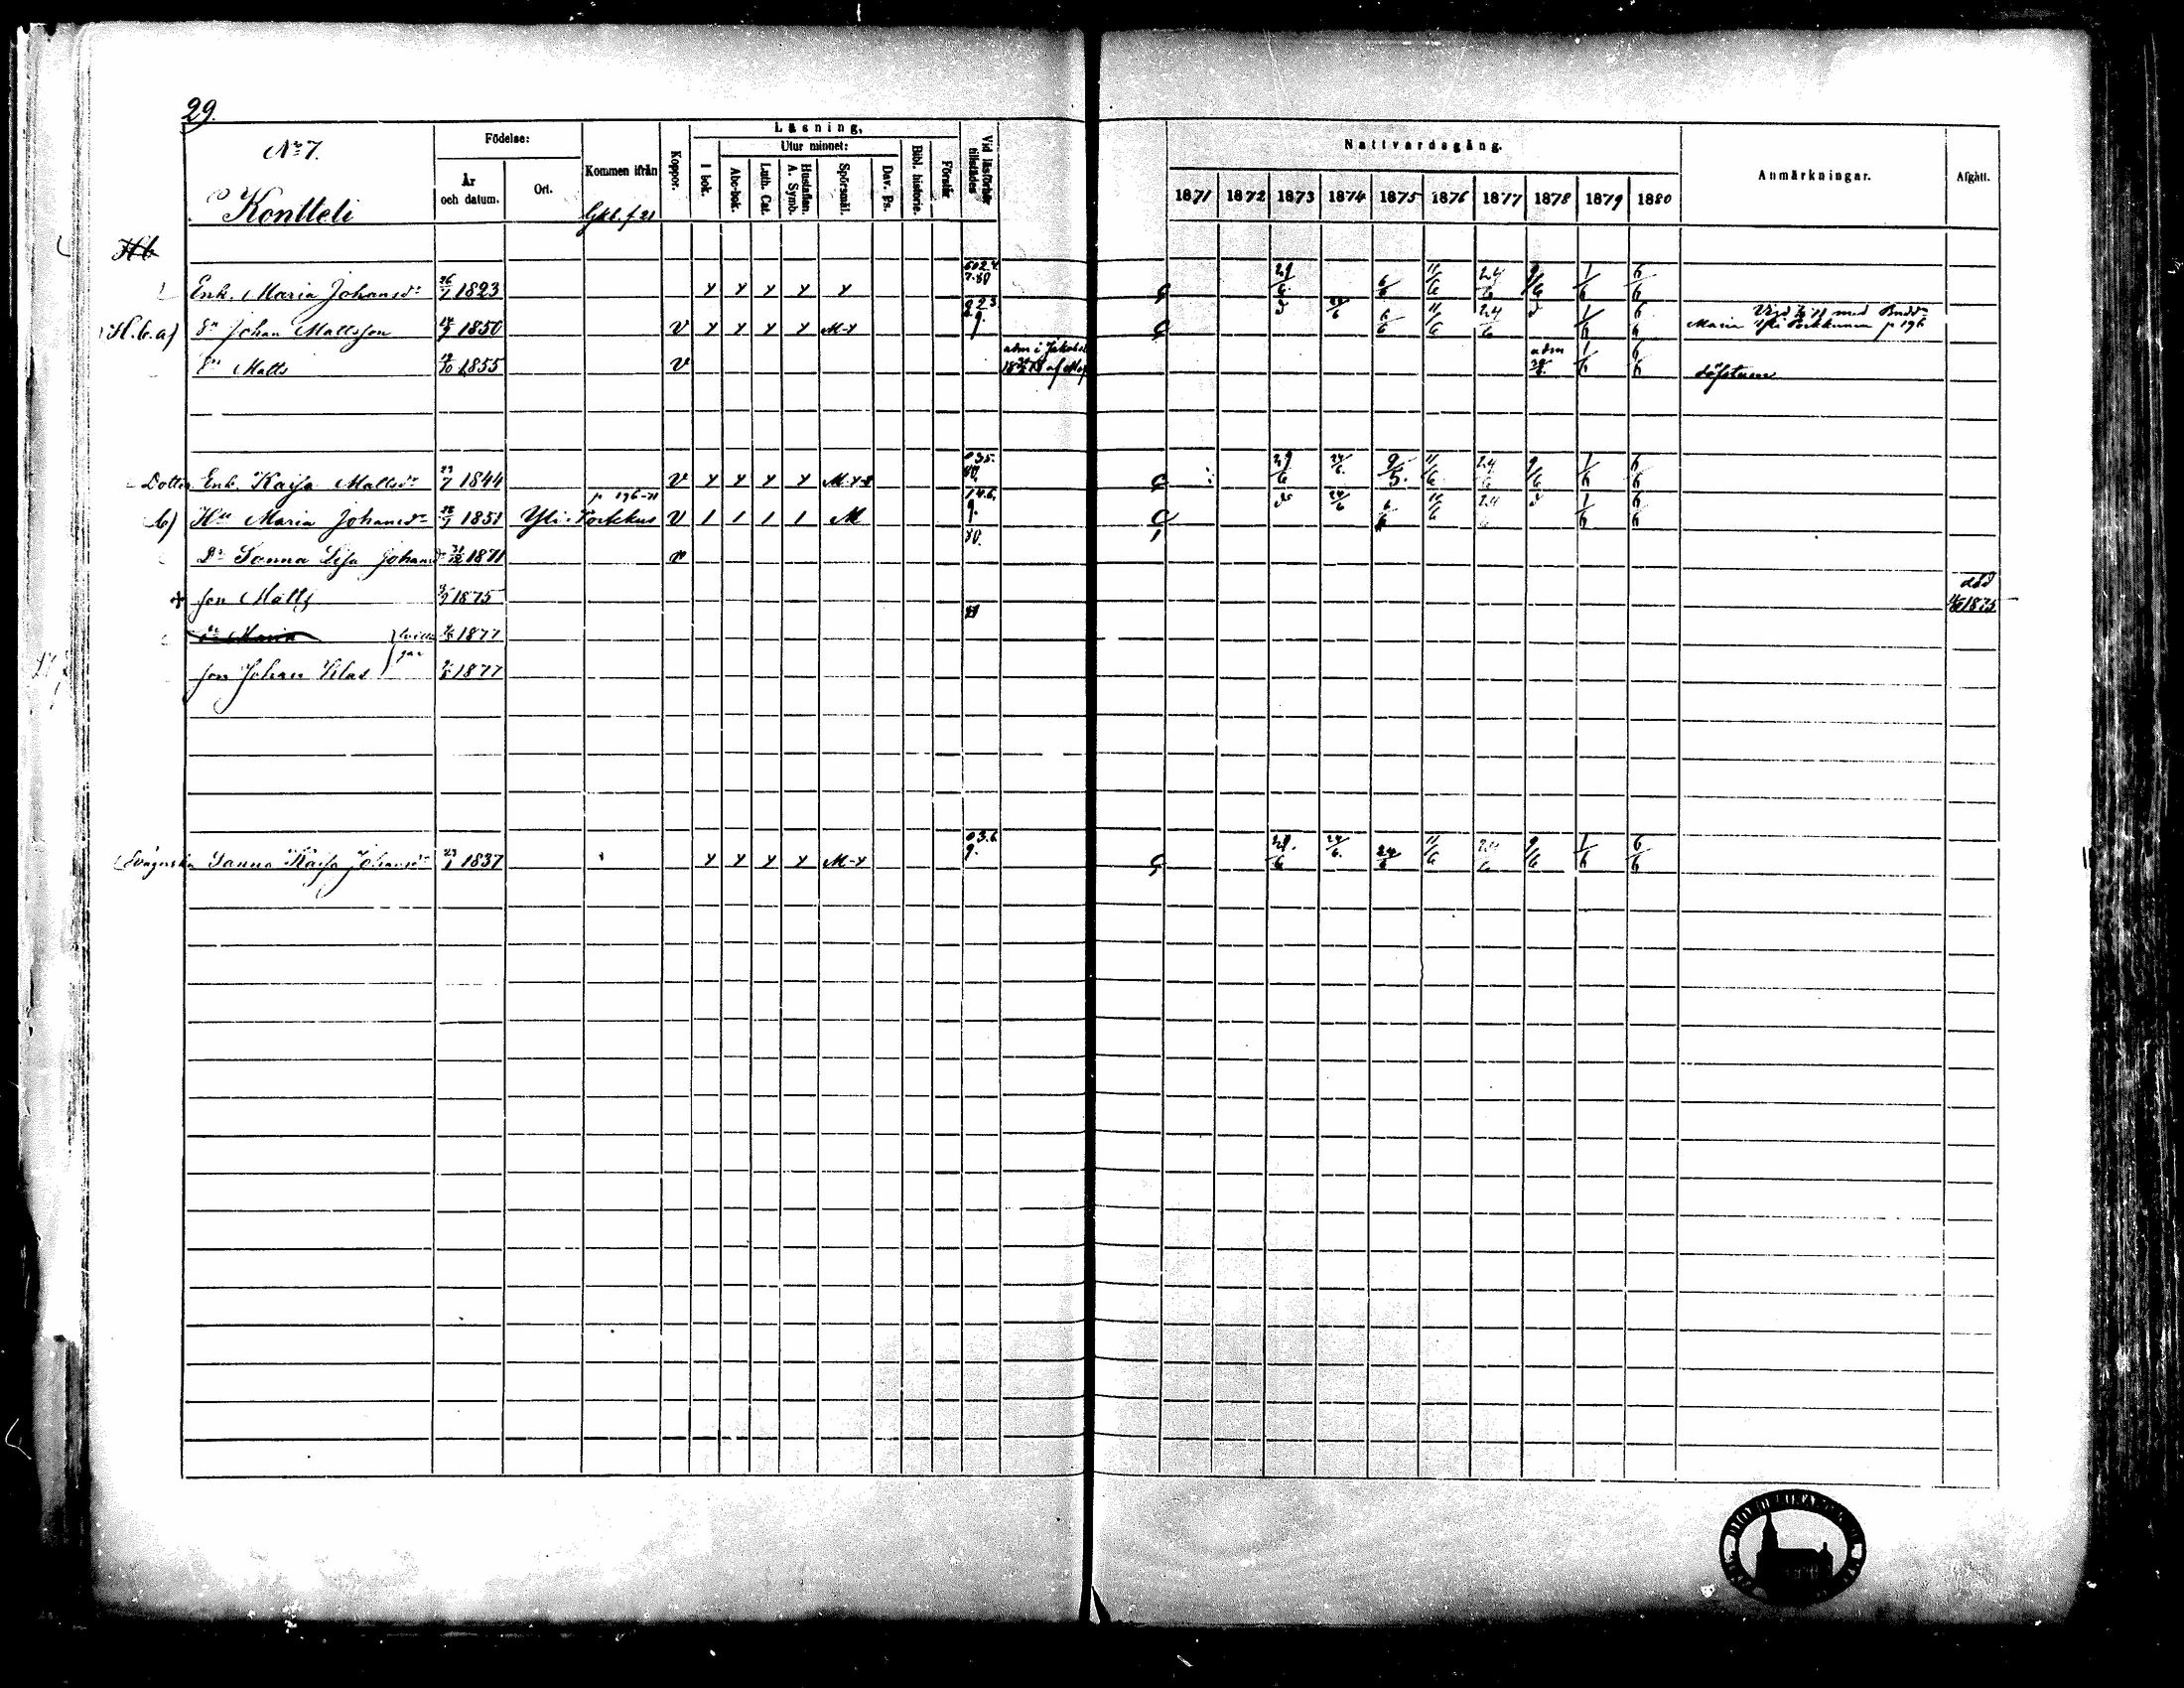 29.
No 7.
Kontteli
Födelse:
År och datum.
Ort.
Kommen ifrån
Koppor.
Läsning,
I bok.
Utur minnet:
Abc-bok.
Luth. Cat.
Hustaflan. A. Symb.
Spörsmål.
Dav. Ps.
Bibl. historie.
Förstår
Vid läsförhör tillstädes
Nattvardsgång.
1871 1872 1873 1874 1875 1876 1877 1878 1879 1880
Anmärkningar.
Afgått.
Hb
Enk. Maria Johansdr 26/7 1823 y y y y y 29/6 6/6 11/6 24/6 9/6 1/6 6/6
H.b.a) Sn Johan Mattsson 1850 v y y y y M-y 24/6 6/6 11/6 24/6 1/6 6/6 med
Maria p 196
Sn Matts 1855 v adm 1/6 6/6
Dotter Enk. Kaisa Mattsdr 1844 v y y y y 29/6 24/6 9/5. 11/6 24/6 9/6 1/6 6/6
p 196-71
b) Hu Maria Johansdr 1851 Yli-Torkkus v 1 1 1 1 M 24/6 6/6 11/6 24/6 1/6 6/6
Dr Sanna Lisa Johansdr 1871 v
+ son Matts 1875 död 1875
Dr Maria 1877
son Johan Klas 1877
Sanna Kaisa Johansdr 23/1 1837 y y y y M-y 29/6 24/6. 24/6 11/6 24/6 9/6 1/6 6/6